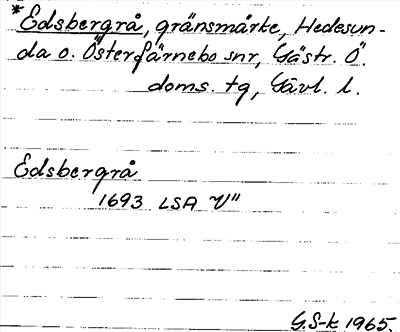 *Edsbergrå, gränsmärke, Hedesun-
da o. Österfärnebo snr, Gästr. Ö.
doms. tg, Gävl. l.
Edsbergrå
1693 LSA V"
G.S-k 1965.